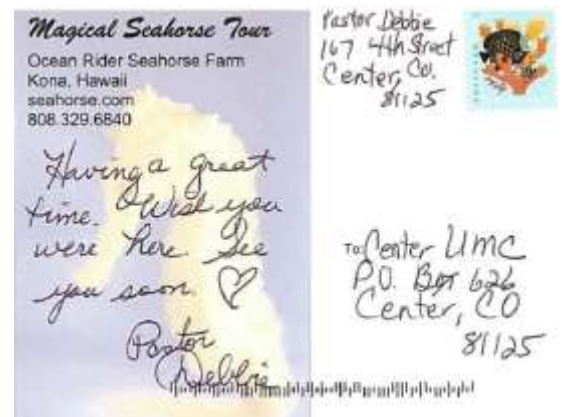 Magical Seahorse Tour
Ocean Rider Seahorse Farm
Kona, Hawaii
seahorse.com
808.329.6840
Having a great
time. Wish you
were here. See
you soon. ♡
Pastor
Debbie
Pastor Debbie
167 4th Street
Center, Co.
81125
To: Center UMC
P.O. Box 626
Center, CO
81125